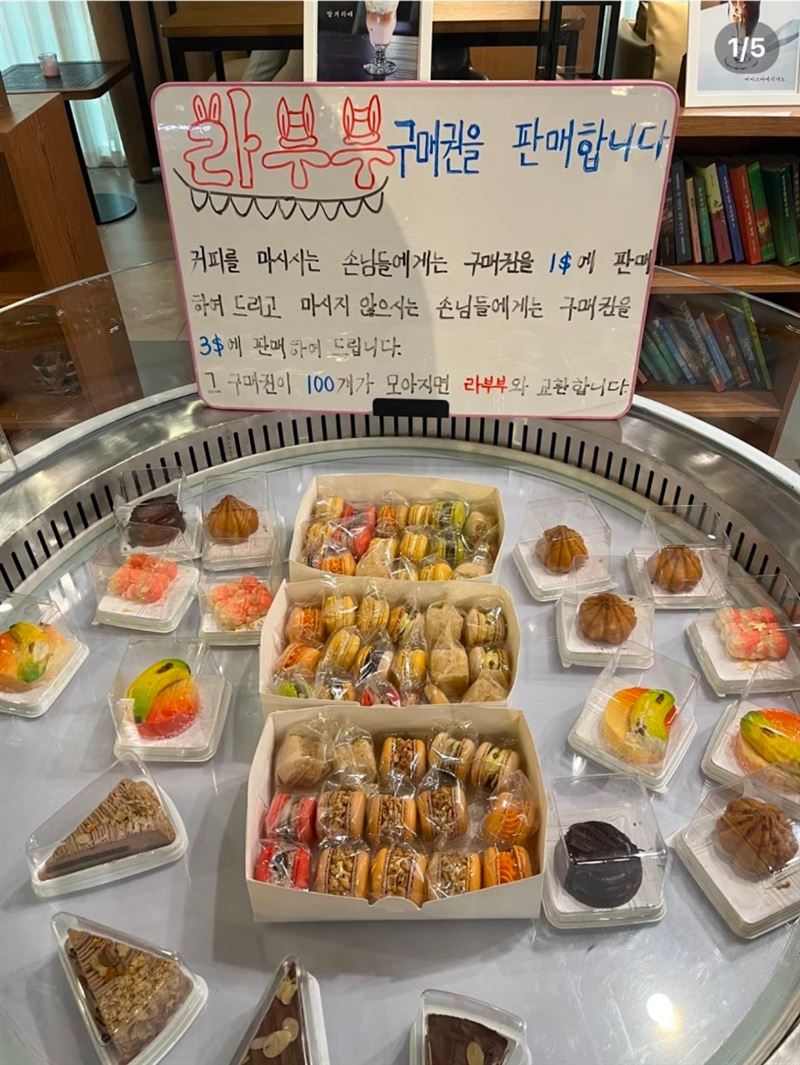 딸기라떼
1/5
아이스아메리카노
라부부 구매권을 판매합니다
커피를 마시시는 손님들에게는 구매권을 1$에 판매
하여 드리고 마시지 않으시는 손님들에게는 구매권을
3$에 판매하여 드립니다.
그 구매권이 100개가 모아지면 라부부와 교환합니다.